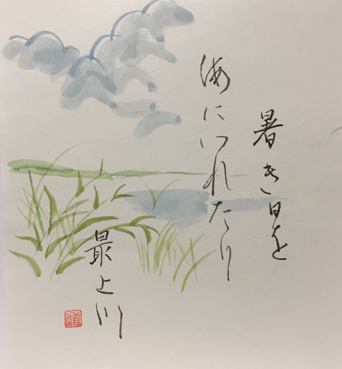 暑き日を
海にいれたり
最上川